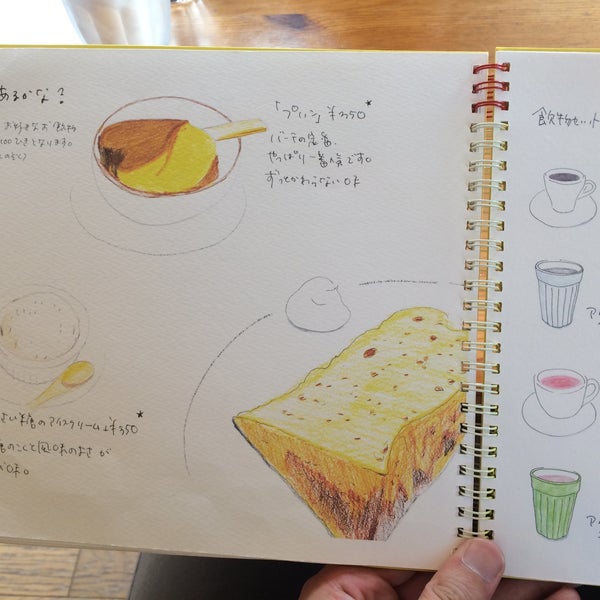 あるかな?
お好きなお飲物
100ひきとなります。
「プリン」¥350*
バーチの定番、
やっぱり一番人気です。
ずっとかわらない味
さい糖のアイスクリーム」¥350*
糖のこくと風味のよさが
味。
飲物セット